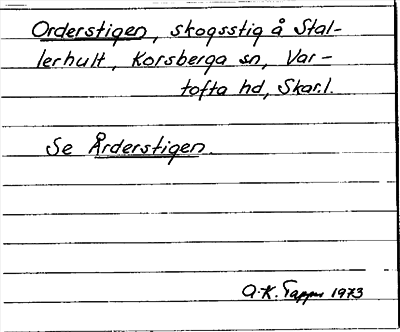 Orderstigen, skogsstig å Stal-
lerhult, Korsberga sn, Var-
tofta hd, Skar.l.
Se Årderstigen.
A-K. Tapper 1973